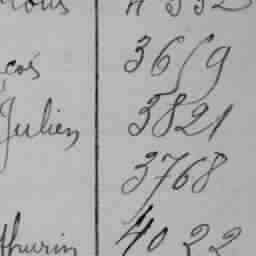 çois 3659
Julien 3821
3768
thurin 4022